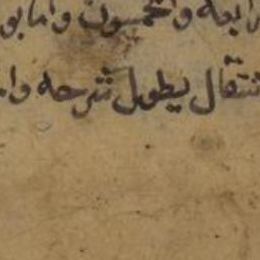 رابعه والخمسون واما بو
نتقال يطول شرحه وا